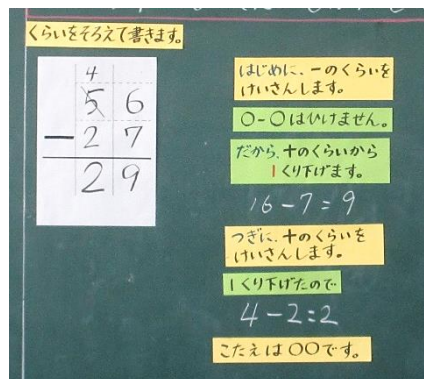 くらいをそろえて書きます。
4
5 6
－2 7
2 9
はじめに、一のくらいを
けいさんします。
○－○はひけません。
だから、十のくらいから
1くり下げます。
16－7＝9
つぎに、十のくらいを
けいさんします。
1くり下げたので
4－2＝2
こたえは○○です。